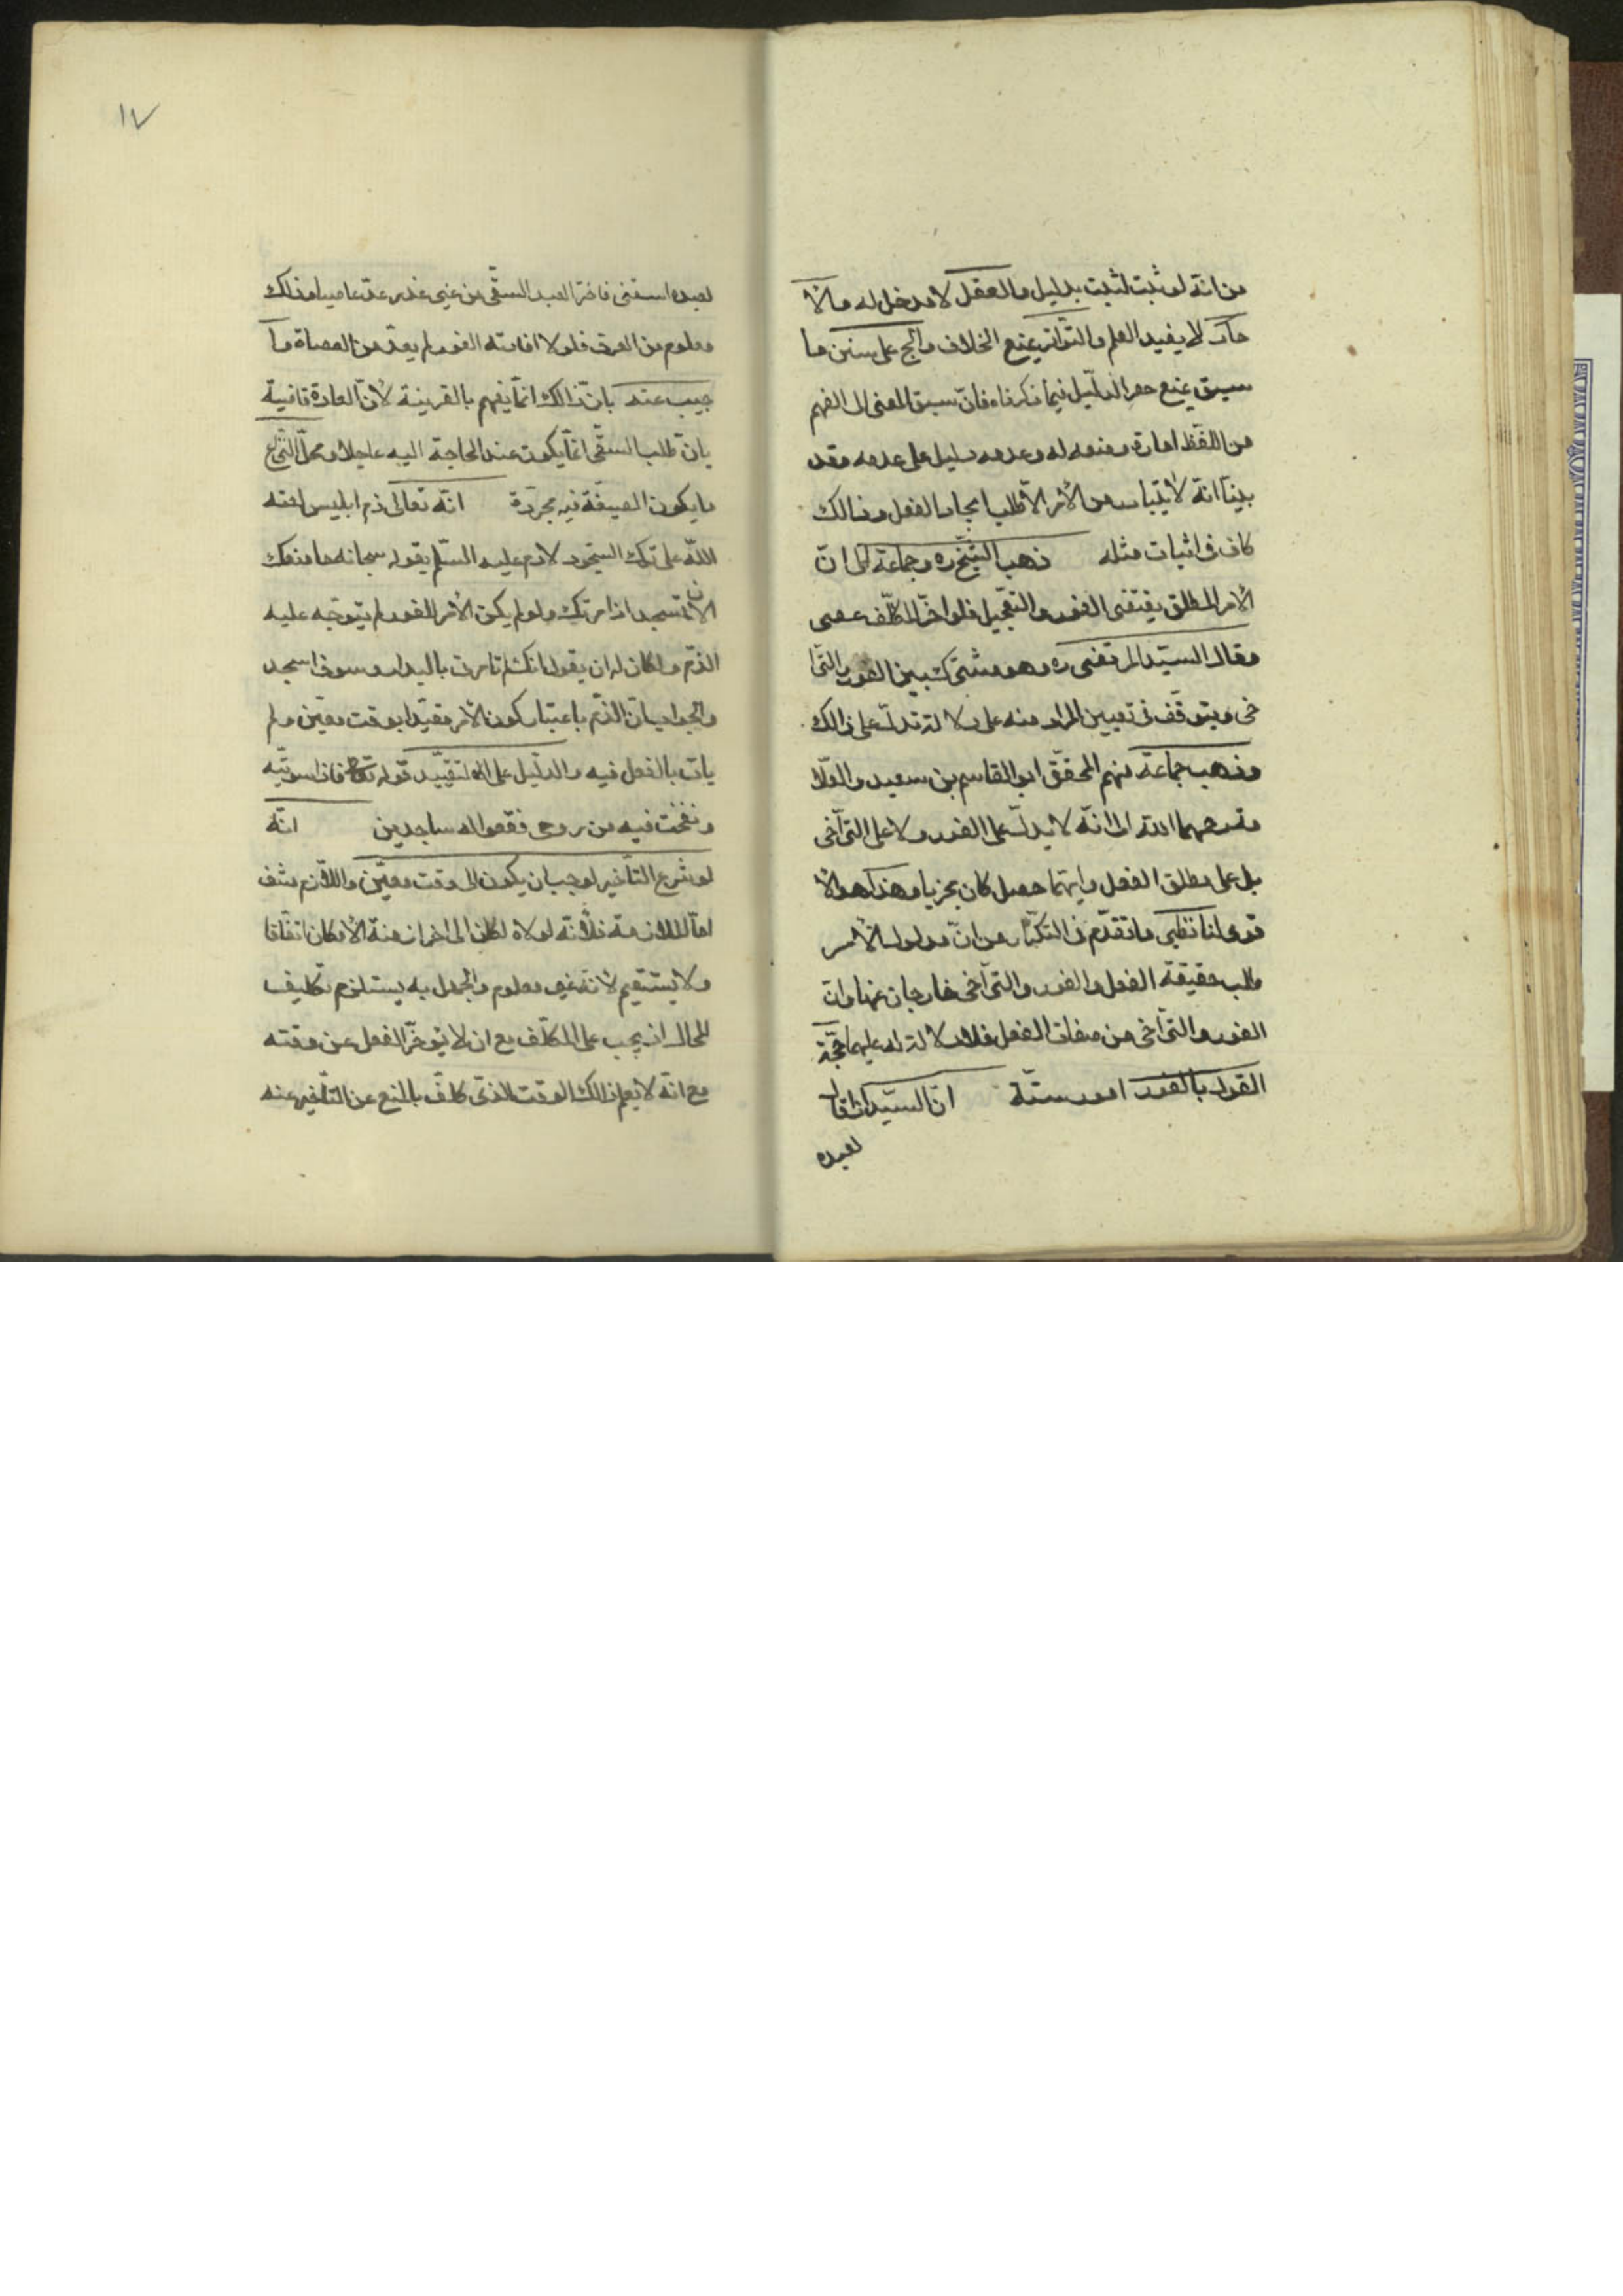 من انّه لو ثبت لثبت بدليل والعقل لا مدخل له والآ
حاد لا يفيد العلم والتّواتر يمنع الخلاف والج على سنن ما
سبق بمنع حصر الدّليل فيما ذكرناه فانّ سبق المعنى الى الفهم
من اللّفظ امارة وضعه له وعدمه دليل على عدمه وقد
بيّنا انّه لا يتبادر من الأمر الّا طلب ايجاد الفعل وذالك
كاف فى اثبات مثله ذهب الشّيخ ره وجماعة الى انّ
الأمر المطلق يقتضى الفور والتّعجيل فلو اخّر المكلّف عصى
وقال السيّد المرتضى ره وهو مشترك بين الفور والتّرا
خى ويتوقّف فى تعيين المراد منه على دلالة تدلّ على ذالك
وذهب جماعة منهم المحقّق ابو القاسم بن سعيد والعلّا
مة رحمهما الله الى انّه لا يدلّ على الفور ولا على التّراخى
بل على مطلق الفعل وايّهما حصل كان مجزيا وهذا هو الأ
قوى لنا نظير ما تقدّم فى التكرار من انّ مدلول الأمر
طلب حقيقة الفعل والفور والتّراخى خارجان عنها وانّ
الفور والتّراخى من صفات الفعل فلا دلالة له عليهما حجّة
القول بالفور امور ستّة انّ السيّد اذا قال
لعبده
١٧
لعبده اسقنى فاخّر العبد السّقى من غير عذر عدّ عاصيا وذلك
معلوم من العرف فلولا افادته الفور لم يعدّ من العصاة وا
جيب عنه بانّ ذالك انّما يفهم بالقرينة لأنّ العادة قاضية
بانّ طلب السّقى انّما يكون عند الحاجة اليه عاجلا ومحلّ النّزاع
ما يكون الصيغة فيه مجرّدة انّه تعالى ذم ابليس لعنه
اللّه على ترك السّجود لآدم عليه السّلم بقوله سبحانه ما منعك
الّا تسجد اذ امرتك ولو لم يكن الأمر للفور لم يتوجّه عليه
الذّم ولكان له ان يقول انّك لم تامرنى بالبدار وسوف اسجد
والجواب انّ الذّم باعتبار كون الأمر مقيّدا بوقت معيّن ولم
يات بالفعل فيه والدّليل على التقييد قوله تعالى فاذا سوّيته
ونفخت فيه من روحى فقعوا له ساجدين انّه
لو شرع التّأخير لوجب ان يكون الى وقت معيّن واللّازم منتف
امّا الملازمة فلأنّه لولاه لكان الى اخر ازمنة الأمكان اتّفاقا
ولا يستقيم لأنّه غير معلوم والجهل به يستلزم تكليف
المحال اذ يجب على المكلّف ح ان لا يؤخّر الفعل عن وقته
مع انّه لا يعلم ذالك الوقت الّذى كلّف بالمنع عن التّأخير عنه